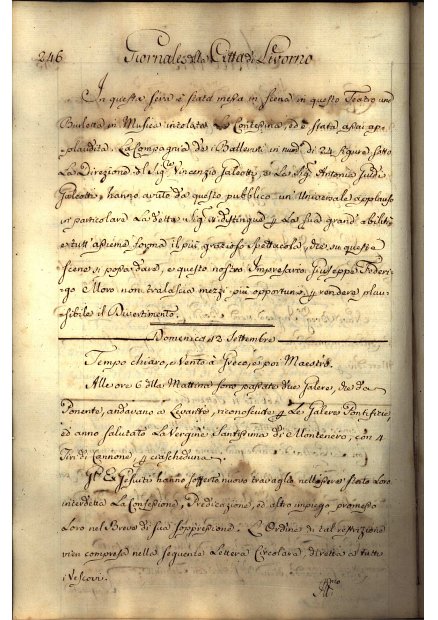 246 Giornale della Città di Livorno
In questa sera è stata messa in scena in questo Teatro una
Burletta in Musica intolata La Contessina, ed è stata assai ap
plaudita. La Compagnia de Ballerini in num.º di 24 figure sotto
La Direzione del Sig.r Vincenzio Galeotti, e La Sig.ra Antonia Guidi
Galeotti, hanno avuto da questo pubblico un Universale applauso
in particolare La detta Sig.ra
e tutt'assieme forma il più grazioso Spettacolo, che su queste
Scene si possa dare, e questo nostro Impresario Giuseppe Federi,
go Elloro non tralascia mezzi più opportuni p rendere plau,
sibile il Divertimento.
Domenica 12 Settembre
Tempo chiaro, e Vento a Greco, e poi Maestro.
Alle ore 6 della Mattina sono passate due Galere, che da
Ponente, andavano a Levante, riconosciute p Le Galere Pontificie,
ed anno salutato La Vergine Santissima di Montenero, con 4
Tiri di Cannone, p ciascheduna.
Gl' Ex Gesuiti hanno sofferto nuovo travaglio nell'essere stata Loro
interdetta La Confessione, Predicazione, ed altro impiego promesso
Loro nel Breve di sua soppressione. L'Ordine di tal restrizione
vien compreso nella seguente Lettera Circolare, diretta a tutti
i Vescovi.